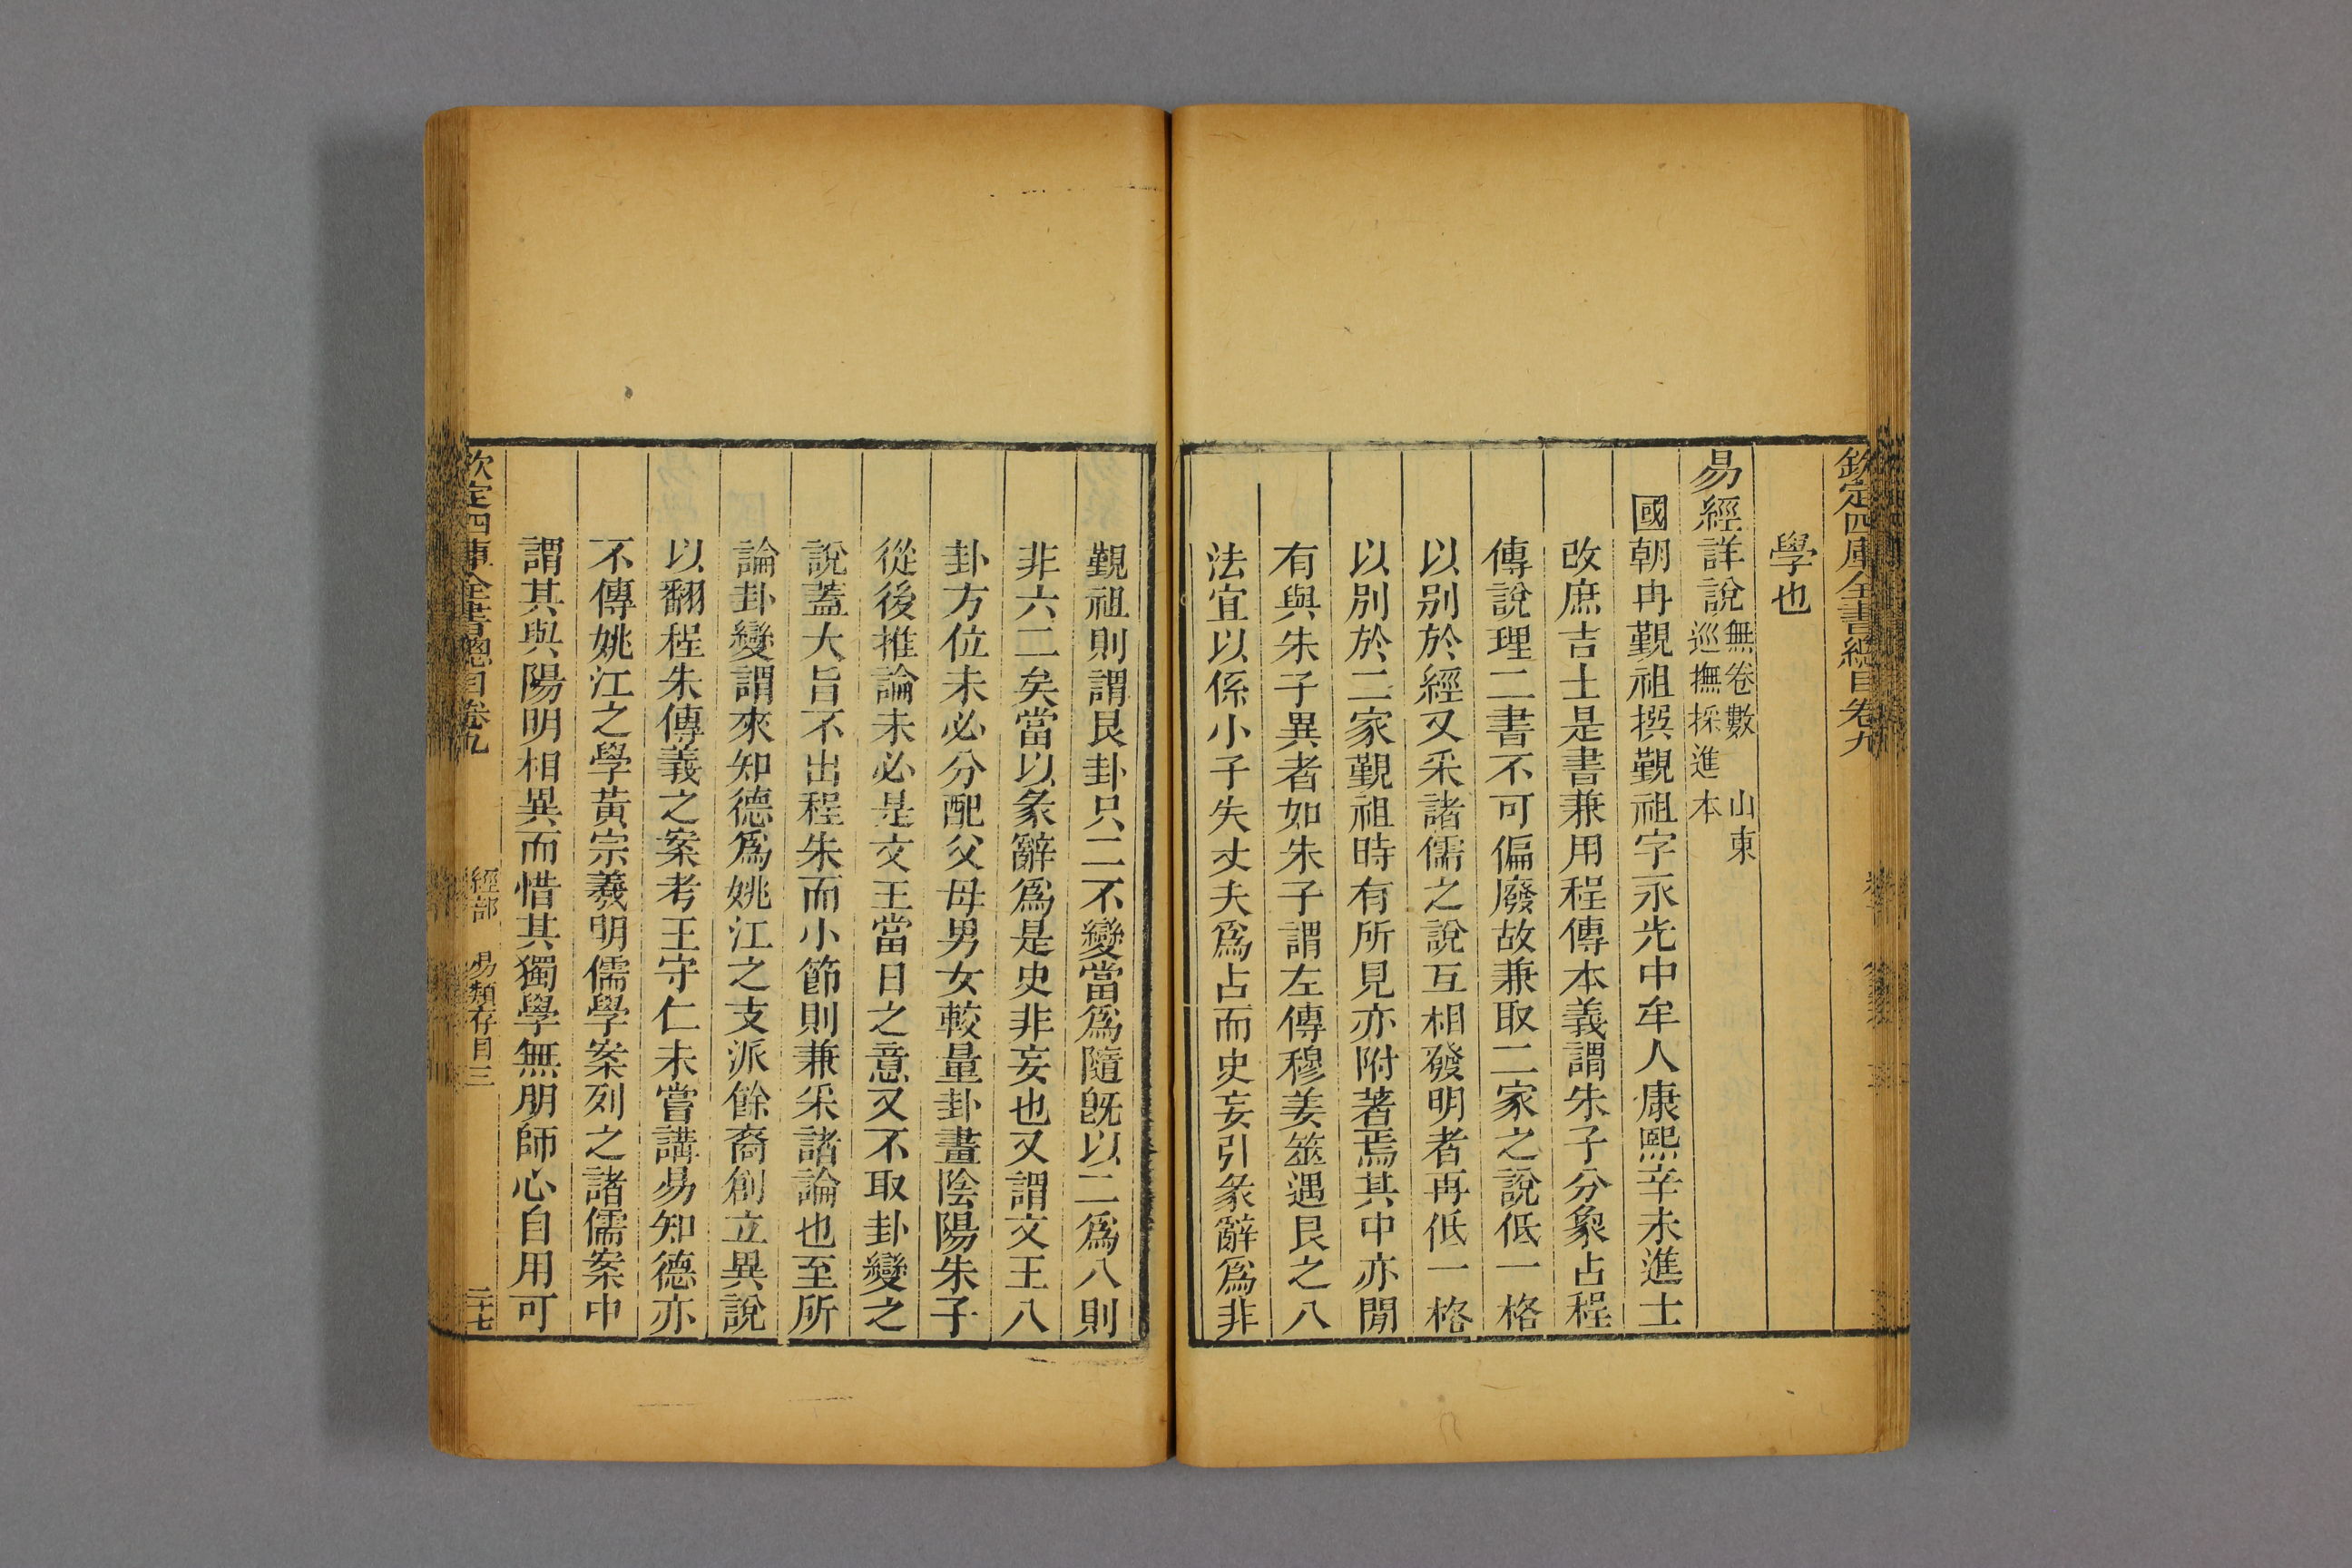 欽定四庫全書總目卷九
學也
易經詳說無卷數 山東
巡撫採進本
國朝冉覲祖撰覲祖字永光中牟人康熙辛未進士
改庶吉士是書兼用程傳本義謂朱子分象占程
傳說理二書不可偏廢故兼取二家之說低一格
以别於經又采諸儒之說互相發明者再低一格
以別於二家覲祖時有所見亦附著焉其中亦間
有與朱子異者如朱子謂左傳穆姜筮遇艮之八
法宜以係小子失丈夫爲占而史妄引彖辭爲非
覲祖則謂艮卦只二不變當爲隨旣以二爲八則
非六二矣當以彖辭爲是史非妄也又謂文王八
卦方位未必分配父母男女較量卦畫陰陽朱子
從後推論未必是文王當日之意又不取卦變之
說蓋大旨不出程朱而小節則兼采諸論也至所
論卦變謂來知德爲姚江之支派餘裔創立異說
以翻程朱傳義之案考王守仁未嘗講易知德亦
不傳姚江之學黃宗羲明儒學案列之諸儒案中
謂其與陽明相異而惜其獨學無朋師心自用可
欽定四庫全書總目卷九 經部 易類存目三 二十七